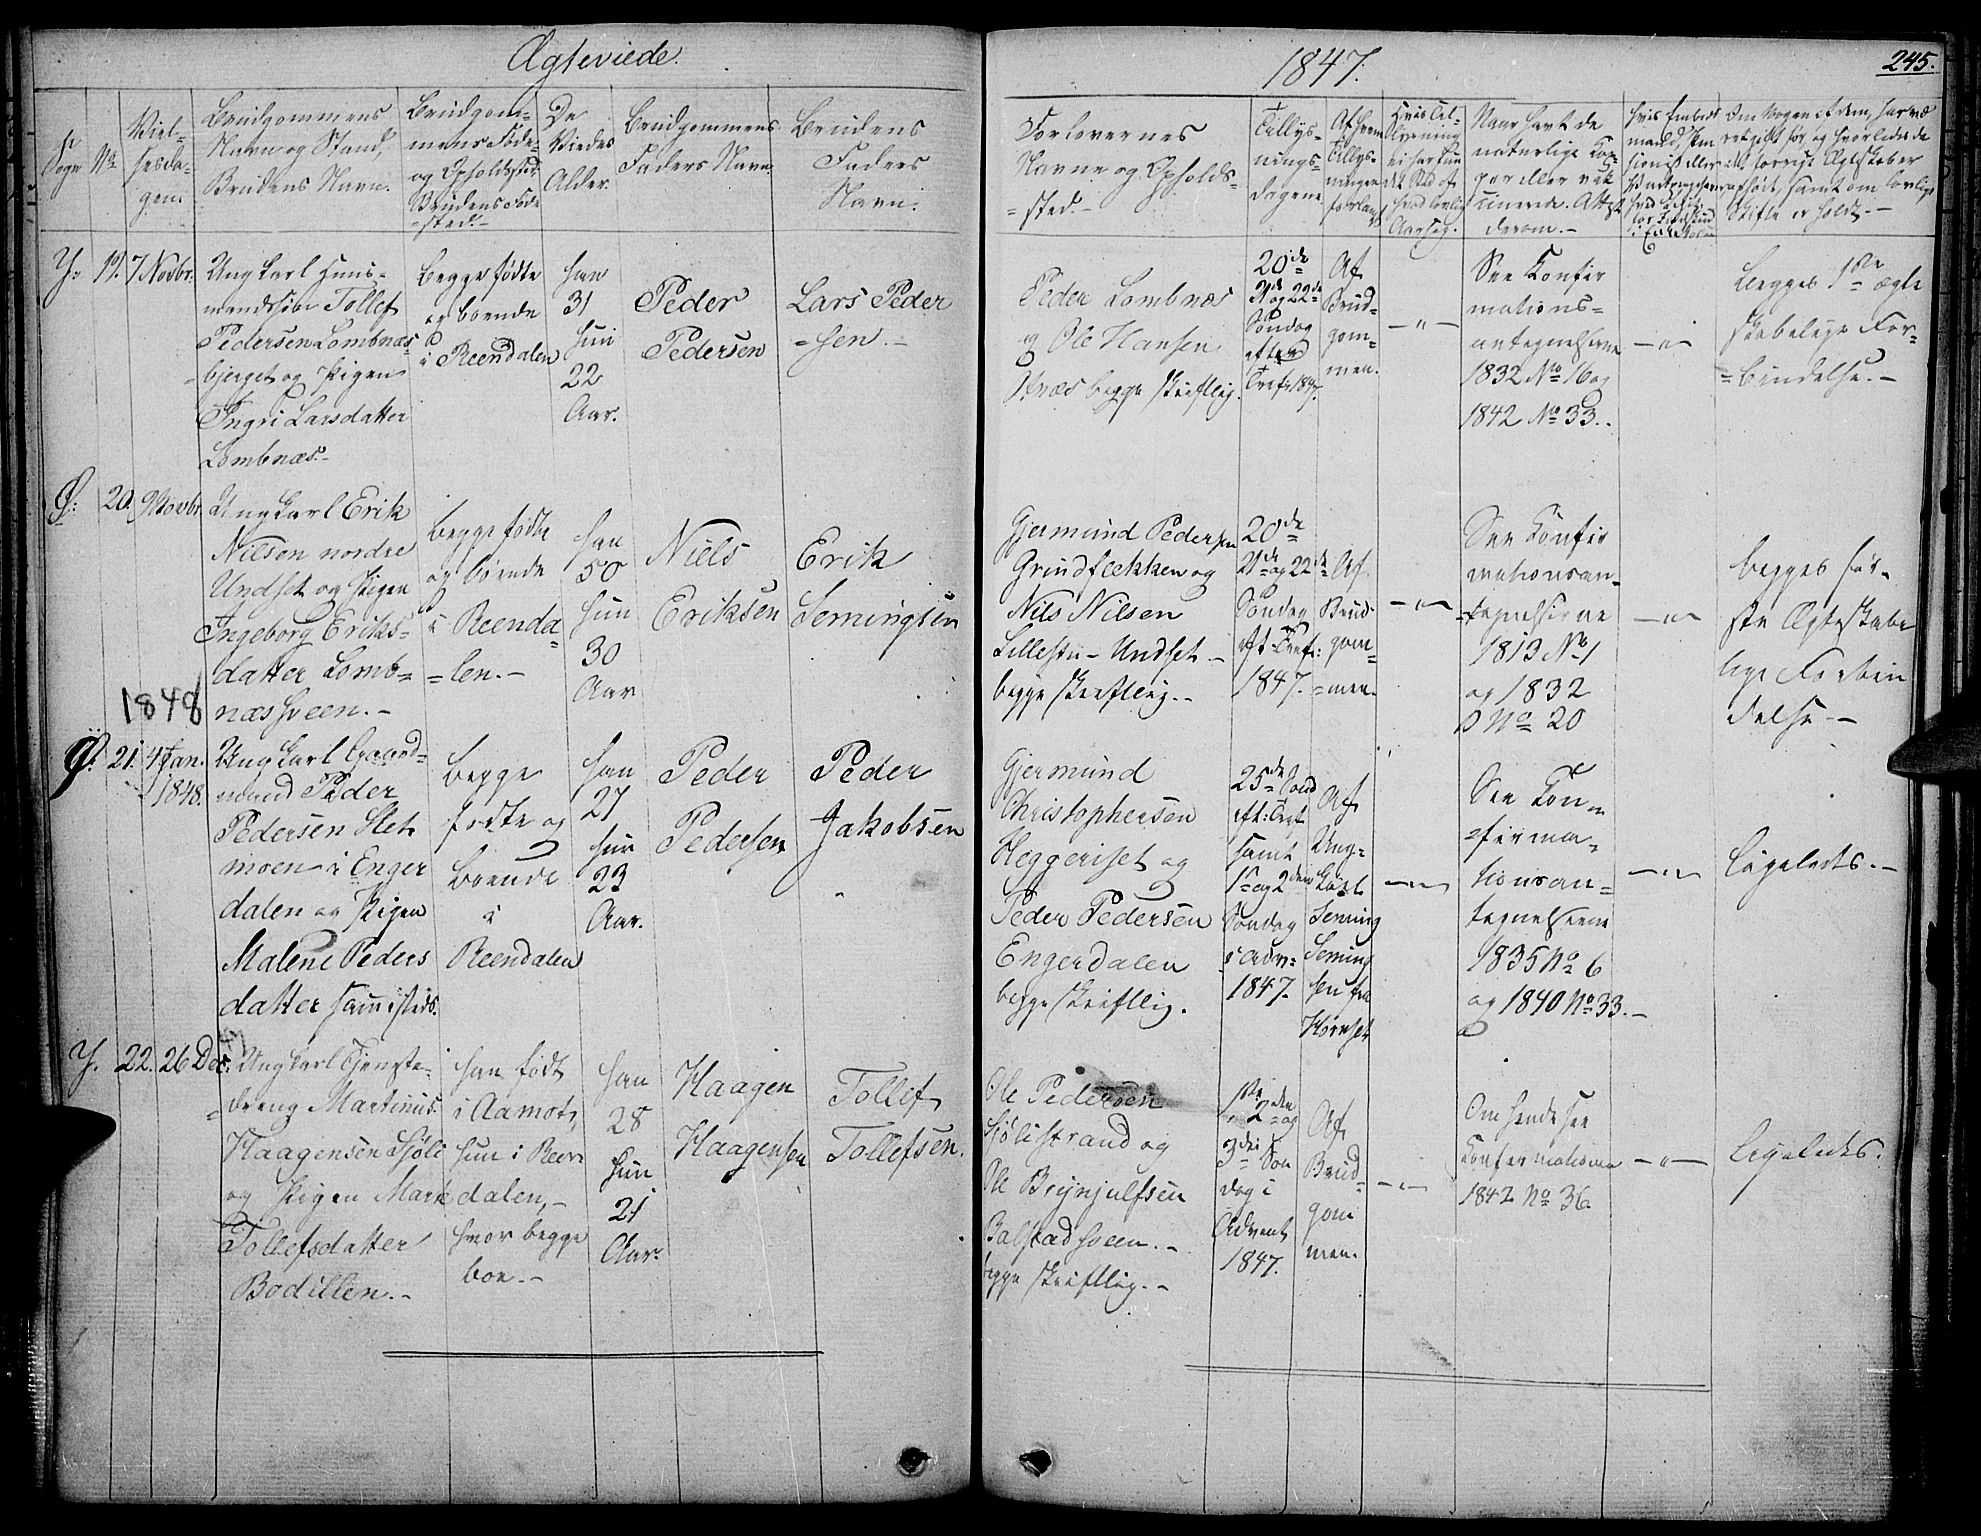 Ægteviede.
1847.
245.
Sogn
No
Viel-
sesda-
gen.
Brudgommens
Navn og Stand,
Brudens Navn.
Brudgom-
mens Føde-
og Opholdssted
Brudens Føde
=sted.-
De
Viedes
Alder.
Brudgommens
Faders Navn.
Brudens
Faders
Navn.
Forlovernes
Navne og Opholds-
=sted.-
Tillys-
nings-
dagene
Af hvem
Tillys-
ningen
forlangt
Hvis Til-
lysning
ei har fun
det Sted af
hvad lovlig
Aarsag.
Naar havt de
naturlige Kop-
per eller vak
cinerede. Attest
derom.-
Y.
19.
7 Novbr.
Ungkarl Huus-
mandssøn Tollef
Pedersen Lombnæs-
bjerget og Pigen
Ingri Larsdatter
Lombnæs.-
Begge fødte
og boende
i Reendalen
Han
31
Hun
22
Aar.
Peder
Pedersen
Lars Peder
=sen.-
Peder Lombnæs
og Ole Hansen
begge skriftlig.
20de
21de og 22de
Søndag
efter
Tref. 1847.
Af
Brud-
gom-
men.
-"-
See Konfir
mations-
antegnelserne
1832 No 16 og
1842 No 33.
-"-
begges 1ste ægte
skabelige For-
=bindelse.-
Ø:
20.
9 Novbr.
Ungkarl Erik
Nilsen nordre
Undset og Pigen
Ingeborg Eriks-
datter Lomb-
næssveen.-
Begge fødte
og boende
i Reenda=
=len.-
Han
50
Hun
30
Aar
Niels
Eriksen
Erik
Semingsen
Gjermund Pedersen
Grindflekken og
Nils Nilsen
Lillestu-Undset-
begge skriftlig.-
20de
21de og 22de
Søndag
eft: Tref:
1847.
Af
Brud-
gom=
=men.
-"-
See Konfir
mationsan-
=tegnelserne
1813 No 1
og 1832
No 20
-"-
begges før-
ste Ægteskabe
lige Forbin
delse.-
1848
Ø:
21.
4 Jan.
1848.
Ungkarl Gaard-
mand Peder
Pedersen Slet
moen i Enger
dalen og Pigen
Malene Peders
datter sammesteds.
Begge
fødte og
boende
i
Reendalen
Han
27
Hun
23
Aar.
Peder
Pedersen
Peder
Jakobsen
Gjermund
Christophersen
Heggeriset og
Peder Pedersen
Engerdalen
begge skriftlig.
25de Sønd
eft: Tref
samt
1ste og 2den
Søndag
i Adv:
1847.
Af
Ung-
karl
Seming
Seming
sen fra
Hornset
-"-
See Kon-
=firma-
tionsan-
tegnelserne
1835 No 6
og 1840 No 33.-
-"-
Ligeledes.-
Y.
22.
26 Dec.
47
Ungkarl Tjeneste-
=dreng Martinus
Haagensen Sjøli
og Pigen Marte
Tollefsdatter
Bodillen.-
Han født
i Aamot,
hun i Reen
dalen,-
hvor begge
boe.-
Han
28
Hun
21
Aar.
Haagen
Haagensen
Tollef
Tollefsen.
Ole Pedersen
Sjølistrand og
Ole Brynjulfsen
Balstadsveen.-
begge skriftlig.-
1ste
2den og
3die Søn
dag i
Advent
1847.
Af
Brud-
gom
men.
-"-
Om hende see
Konfirmationen
1842 No 36.
-"-
Ligeledes.